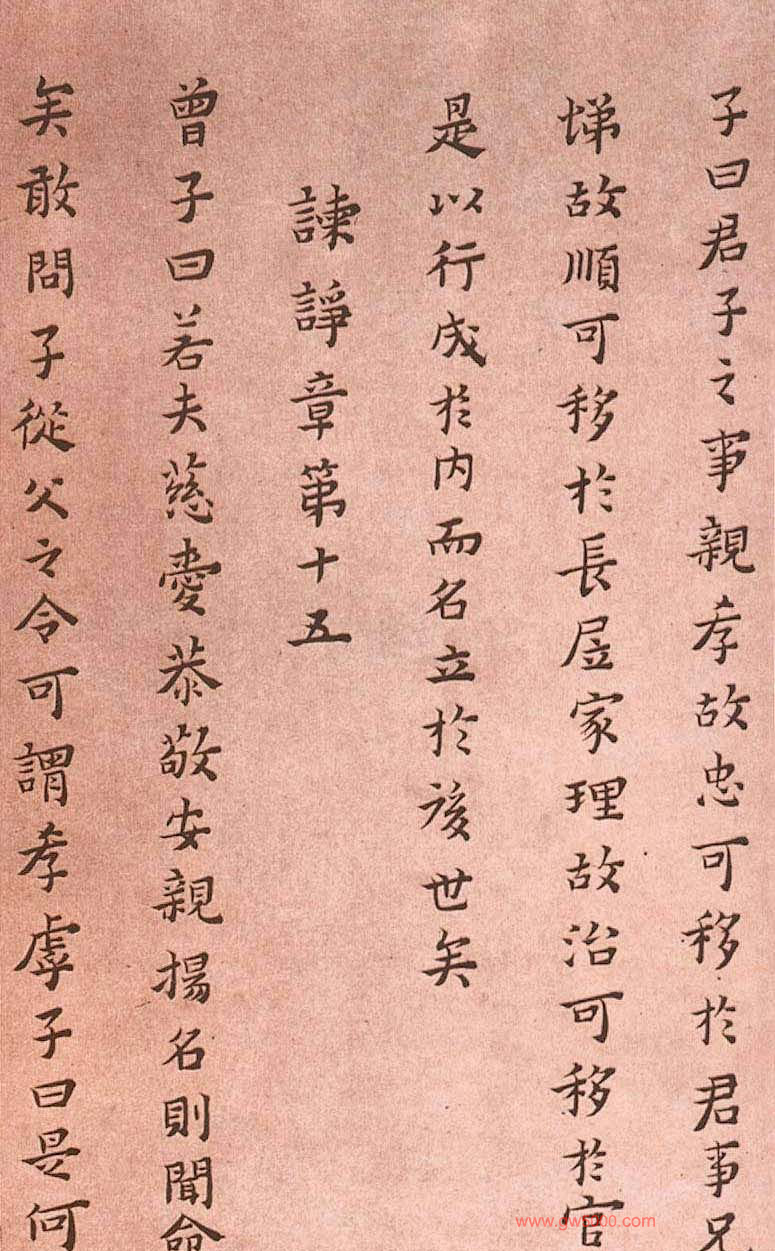 子曰君子之事親孝故忠可移於君事兄
悌故順可移於長居家理故治可移於官
是以行成於内而名立於後世矣
諫諍章第十五
曾子曰若夫慈愛恭敬安親揚名則聞命
矣敢問子從父之令可謂孝虖子曰是何
www.gw5000.com